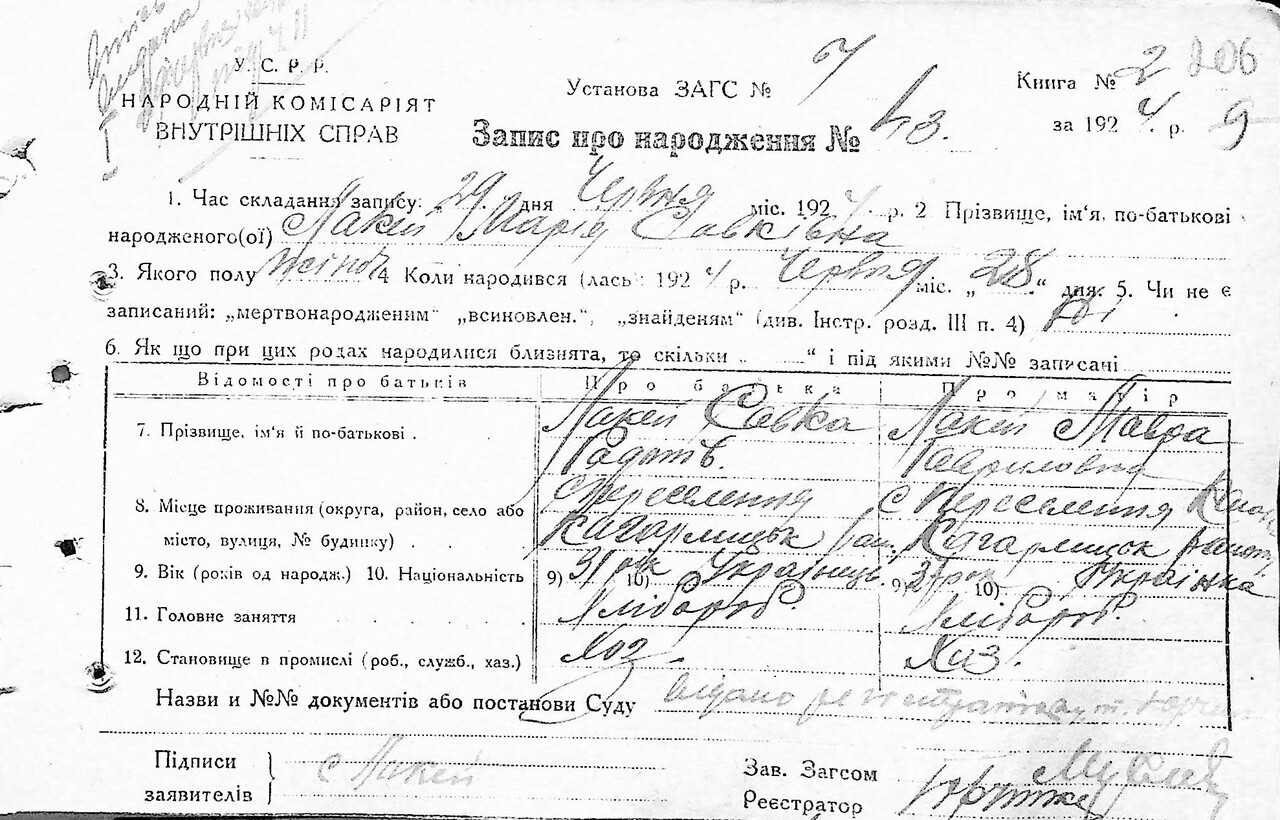 У. С. Р. Р.
НАРОДНІЙ КОМІСАРІЯТ
ВНУТРІШНІХ СПРАВ
Установа ЗАГС №
Книга № 2 206
Запис про народження № 43.
за 1924 р. 9
1. Час складання запису: „29 дня Червня міс. 1924 р. 2 Прізвище, ім'я, по-батькові
народженого(ої) Макей Марія Савківна
3. Якого полу жіноч 4 Коли народився (лась) 1924 р. Червня міс. „28“ дня. 5. Чи не є
записаний: „мертвонародженим“ „всиновлен.“, „знайденям“ (див. Інстр. розд. III п. 4) Ні
6. Як що при цих родах народилися близнята, то скільки „ “ і під якими №№ записані
Відомості про батьків Про батька Про матір
7. Прізвище, ім'я й по-батькові . Макей Савка Макей Мавра
Гавриловна
8. Місце проживання (округа, район, село або с Переселення с Переселення
місто, вулиця, № будинку) . . Кагарлицьк Кагарлицьк
9. Вік (років од народж.) 10. Національність 9) 31 рок 10) Українець 9) 10) Українка
11. Головне заняття Хлібороб. Хлібороб.
12. Становище в промислі (роб., служб., хаз.) Хоз. Хоз.
Назви и №№ документів або постанови Суду видано
Підписи
заявителів с Макей
Зав. Загсом
Реєстратор